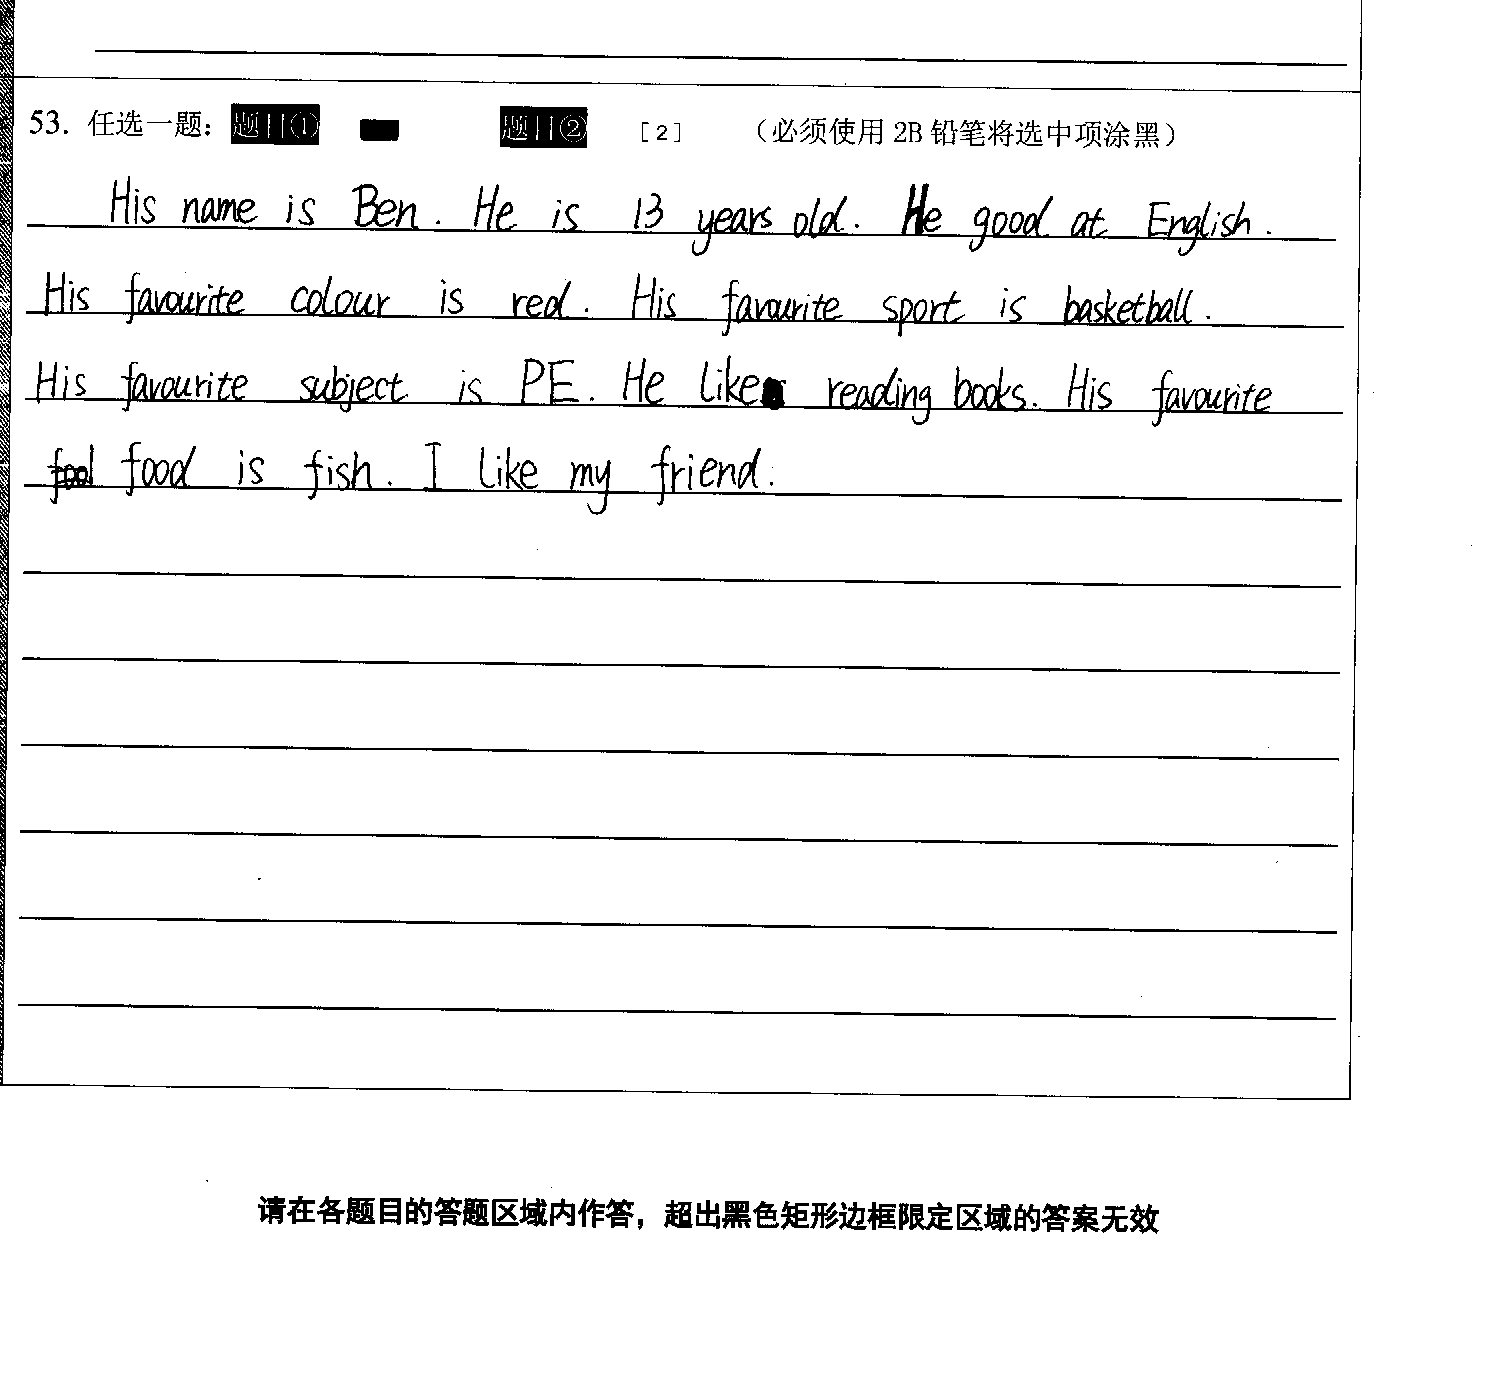 53. 任选一题： 题目① 题目② [2] （必须使用 2B 铅笔将选中项涂黑）
His name is Ben. He is 13 years old. He good at English.
His favourite colour is red. His favourite sport is basketball.
His favourite subject is PE. He likes reading books. His favourite
food is fish. I like my friend.
请在各题目的答题区域内作答，超出黑色矩形边框限定区域的答案无效